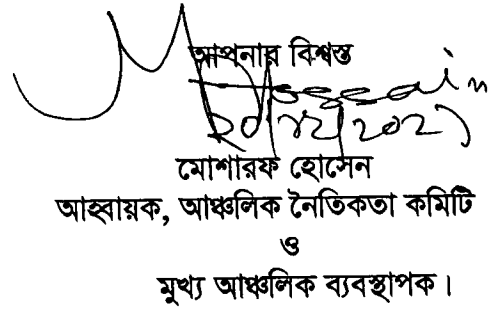 আপনার বিশ্বস্ত
মোশারফ হোসেন
আহ্বায়ক, আঞ্চলিক নৈতিকতা কমিটি
ও
মুখ্য আঞ্চলিক ব্যবস্থাপক।